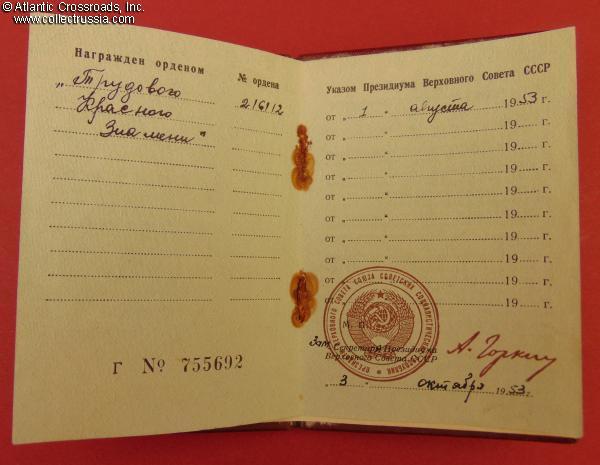 © Atlantic Crossroads, Inc.
www.collectrussia.com
Награжден орденом
№ ордена
„Трудового
Красного
Знамени“
216112
Г № 755692
Указом Президиума Верховного Совета СССР
от „ 1 “ августа 1953 г.
от „ “ 19 г.
от „ “ 19 г.
от „ “ 19 г.
от „ “ 19 г.
от „ “ 19 г.
от „ “ 19 г.
от „ “ 19 г.
от „ “ 19 г.
М. П.
Зам. Секретарь Президиума
Верховного Совета СССР
А. Горкин
„ 3 “ октября 1953 г.